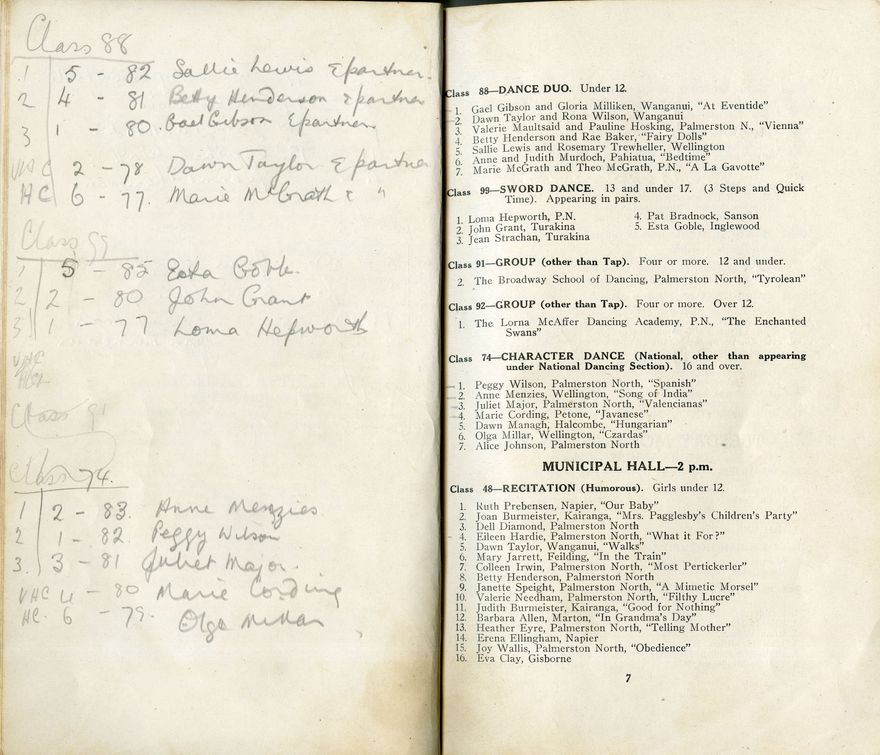 Class 88
1 5 - 82 Sallie Lewis & partner.
2 4 - 81 Betty Henderson & partner
3 1 - 80. Gael Gibson & partner.
VHC 2 - 78 Dawn Taylor & partner
HC 6 - 77. Marie McGrath & "
Class 99
1 5 - 85 Esta Goble.
2 2 - 80 John Grant
3 1 - 77 Loma Hepworth
VHC
HC
Class 91
Class 74.
1 2 - 83. Anne Menzies
2 1 - 82. Peggy Wilson
3. 3 - 81 Juliet Major.
VHC 4 - 80 Marie Cording
HC. 6 - 79. Olga Millar
Class 88—DANCE DUO. Under 12.
1. Gael Gibson and Gloria Milliken, Wanganui, "At Eventide"
2. Dawn Taylor and Rona Wilson, Wanganui
3. Valerie Maultsaid and Pauline Hosking, Palmerston N., "Vienna"
4. Betty Henderson and Rae Baker, "Fairy Dolls"
5. Sallie Lewis and Rosemary Trewheller, Wellington
6. Anne and Judith Murdoch, Pahiatua, "Bedtime"
7. Marie McGrath and Theo McGrath, P.N., "A La Gavotte"
Class 99—SWORD DANCE. 13 and under 17. (3 Steps and Quick
Time). Appearing in pairs.
1. Loma Hepworth, P.N. 4. Pat Bradnock, Sanson
2. John Grant, Turakina 5. Esta Goble, Inglewood
3. Jean Strachan, Turakina
Class 91—GROUP (other than Tap). Four or more. 12 and under.
2. The Broadway School of Dancing, Palmerston North, "Tyrolean"
Class 92—GROUP (other than Tap). Four or more. Over 12.
1. The Lorna McAffer Dancing Academy, P.N., "The Enchanted
Swans"
Class 74—CHARACTER DANCE (National, other than appearing
under National Dancing Section). 16 and over.
1. Peggy Wilson, Palmerston North, "Spanish"
2. Anne Menzies, Wellington, "Song of India"
3. Juliet Major, Palmerston North, "Valencianas"
4. Marie Cording, Petone, "Javanese"
5. Dawn Managh, Halcombe, "Hungarian"
6. Olga Millar, Wellington, "Czardas"
7. Alice Johnson, Palmerston North
MUNICIPAL HALL—2 p.m.
Class 48—RECITATION (Humorous). Girls under 12.
1. Ruth Prebensen, Napier, "Our Baby"
2. Joan Burmeister, Kairanga, "Mrs. Pagglesby's Children's Party"
3. Dell Diamond, Palmerston North
4. Eileen Hardie, Palmerston North, "What it For?"
5. Dawn Taylor, Wanganui, "Walks"
6. Mary Jarrett, Feilding, "In the Train"
7. Colleen Irwin, Palmerston North, "Most Pertickerler"
8. Betty Henderson, Palmerston North
9. Janette Speight, Palmerston North, "A Mimetic Morsel"
10. Valerie Needham, Palmerston North, "Filthy Lucre"
11. Judith Burmeister, Kairanga, "Good for Nothing"
12. Barbara Allen, Marton, "In Grandma's Day"
13. Heather Eyre, Palmerston North, "Telling Mother"
14. Erena Ellingham, Napier
15. Joy Wallis, Palmerston North, "Obedience"
16. Eva Clay, Gisborne
7